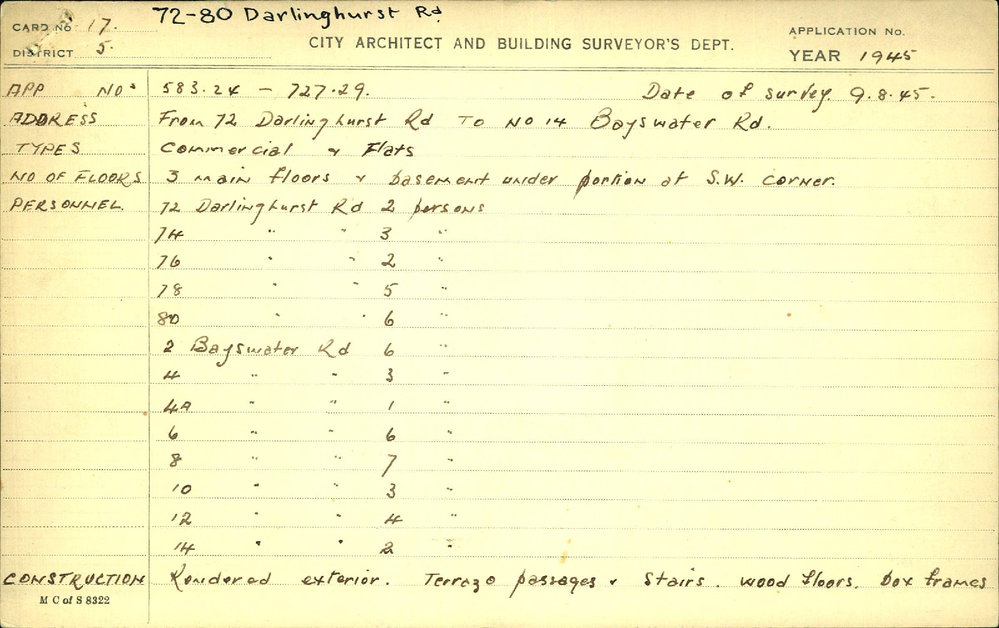 72-80 Darlinghurst Rd
CARD No 17.
DISTRICT 5.
CITY ARCHITECT AND BUILDING SURVEYOR'S DEPT.
APPLICATION No.
YEAR 1945
APP Nos 583.24 - 727.29. Date of survey. 9.8.45.
ADDRESS From 72 Darlinghurst Rd To No 14 Bayswater Rd.
TYPES Commercial & Flats
NO OF FLOORS 3 main floors & basement under portion at S.W. corner.
PERSONNEL. 72 Darlinghurst Rd 2 persons
74 " " 3 "
76 " " 2 "
78 " " 5 "
80 " " 6 "
2 Bayswater Rd 6 "
4 " " 3 "
4A " " 1 "
6 " " 6 "
8 " " 7 "
10 " " 3 "
12 " " 4 "
14 " " 2 "
CONSTRUCTION Rendered exterior. Terrazo passages & Stairs. wood floors. box frames
M C of S 8322